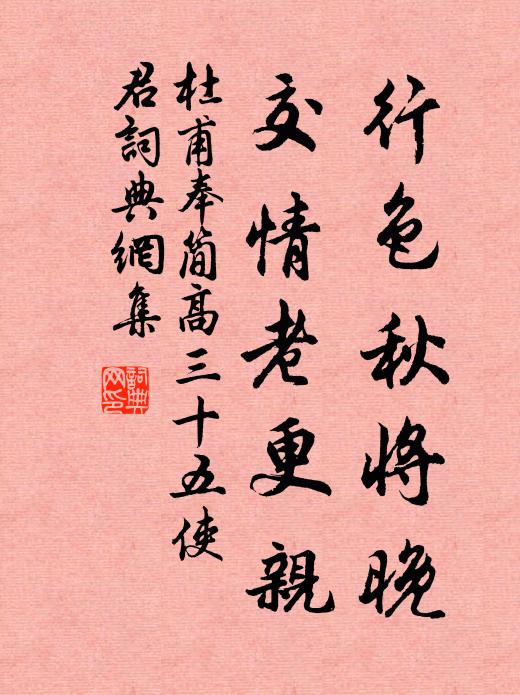 行色秋將晚
交情老更親
杜甫奉简高三十五使
君詞典網集
詞典
网印